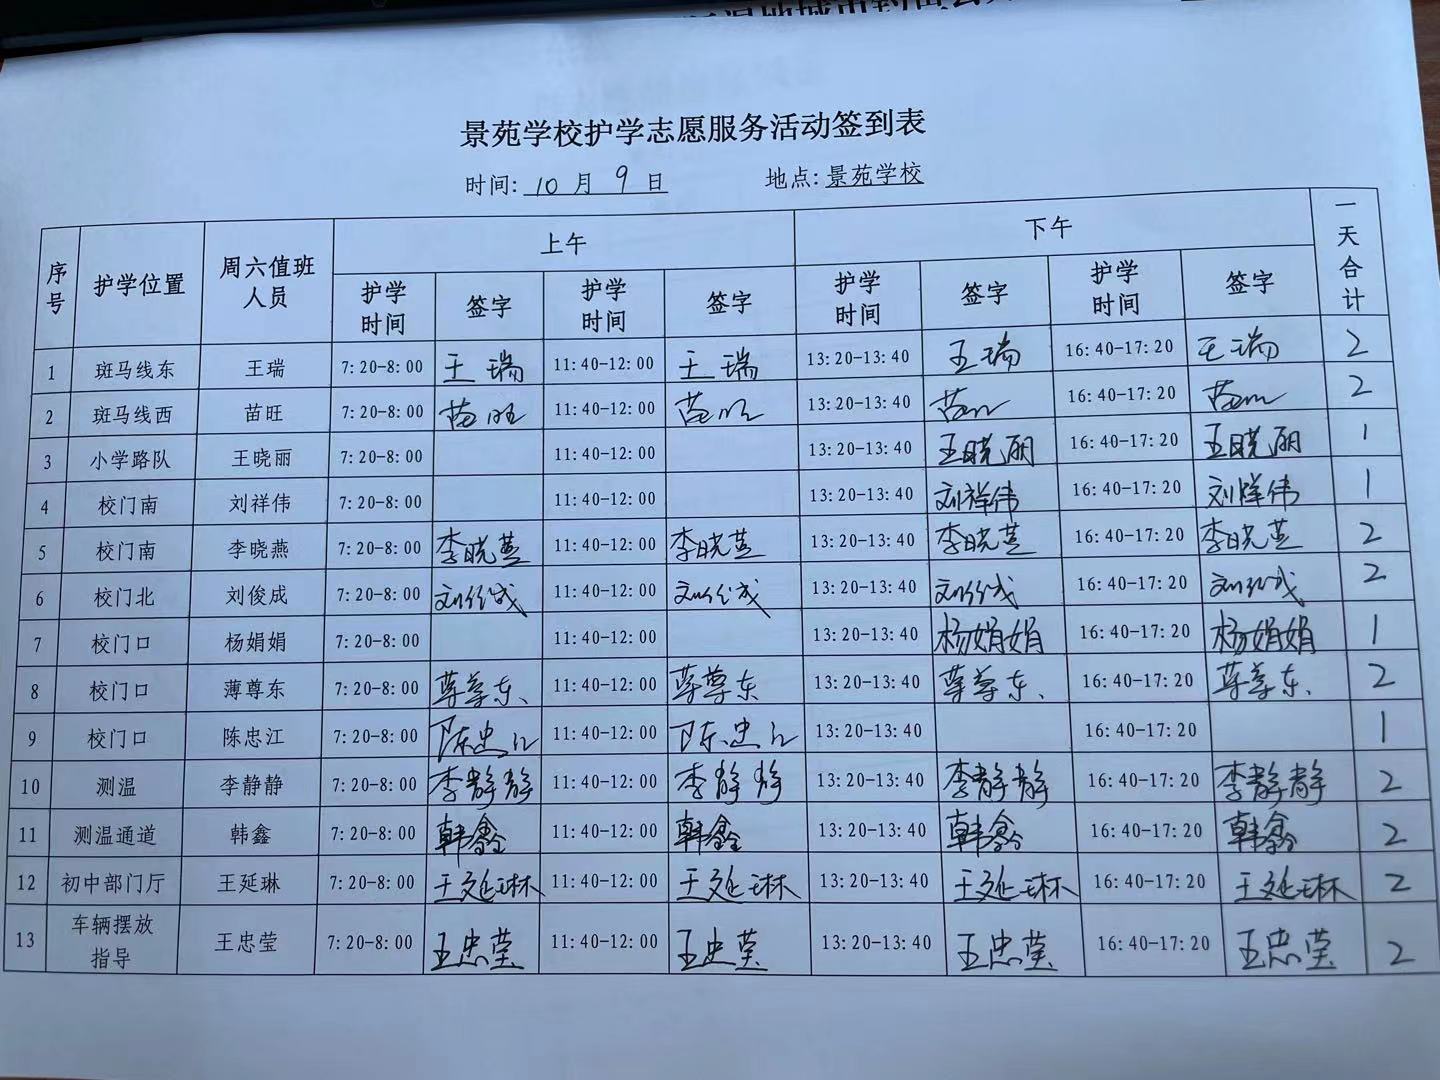 景苑学校护学志愿服务活动签到表
时间: 10 月 9 日 地点: 景苑学校
序号 护学位置 周六值班人员 上午 下午 一天合计
护学时间 签字 护学时间 签字 护学时间 签字 护学时间 签字
1 斑马线东 王瑞 7:20-8:00 王瑞 11:40-12:00 王瑞 13:20-13:40 王瑞 16:40-17:20 王瑞 2
2 斑马线西 苗旺 7:20-8:00 苗旺 11:40-12:00 苗旺 13:20-13:40 苗旺 16:40-17:20 苗旺 2
3 小学路队 王晓丽 7:20-8:00 11:40-12:00 13:20-13:40 王晓丽 16:40-17:20 王晓丽 1
4 校门南 刘祥伟 7:20-8:00 11:40-12:00 13:20-13:40 刘祥伟 16:40-17:20 刘祥伟 1
5 校门南 李晓燕 7:20-8:00 李晓燕 11:40-12:00 李晓燕 13:20-13:40 李晓燕 16:40-17:20 李晓燕 2
6 校门北 刘俊成 7:20-8:00 刘俊成 11:40-12:00 刘俊成 13:20-13:40 刘俊成 16:40-17:20 刘俊成 2
7 校门口 杨娟娟 7:20-8:00 11:40-12:00 13:20-13:40 杨娟娟 16:40-17:20 杨娟娟 1
8 校门口 薄尊东 7:20-8:00 薄尊东 11:40-12:00 薄尊东 13:20-13:40 薄尊东 16:40-17:20 薄尊东 2
9 校门口 陈忠江 7:20-8:00 陈忠江 11:40-12:00 陈忠江 13:20-13:40 16:40-17:20 1
10 测温 李静静 7:20-8:00 李静静 11:40-12:00 李静静 13:20-13:40 李静静 16:40-17:20 李静静 2
11 测温通道 韩鑫 7:20-8:00 韩鑫 11:40-12:00 韩鑫 13:20-13:40 韩鑫 16:40-17:20 韩鑫 2
12 初中部门厅 王延琳 7:20-8:00 王延琳 11:40-12:00 王延琳 13:20-13:40 王延琳 16:40-17:20 王延琳 2
13 车辆摆放指导 王忠莹 7:20-8:00 王忠莹 11:40-12:00 王忠莹 13:20-13:40 王忠莹 16:40-17:20 王忠莹 2